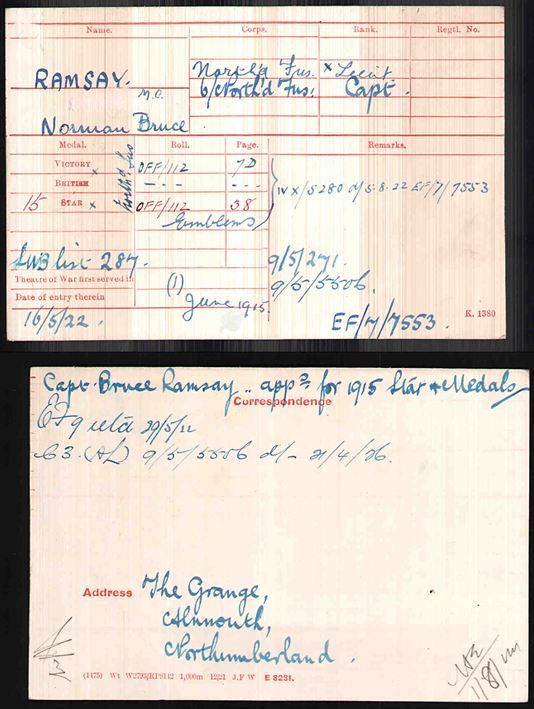 Name. Corps. Rank. Regtl. No.
RAMSAY. North'd Fus. x Lieut.
M.C. 6/North'd Fus: Capt.
Norman Bruce
Medal. Roll. Page. Remarks.
VICTORY x OFF/112 7D
BRITISH - - - - - - IV X/5280 d/ 5.8.22 EF/7/7553
15 STAR x OFF/112 38
North'd Fus
Emblems
SWB list 287.
9/5/271.
Theatre of War first served in (1) 9/5/5506.
Date of entry therein June 1915.
16/5/22. EF/7/7553. K. 1380
Capt. Bruce Ramsay .. appn for 1915 Star & Medals
Correspondence
EF9 29/5/22
C3. (AL) 9/5/5506 d/- 21/4/26.
Address The Grange,
Alnmouth,
Northumberland.
(1475) Wt W2795/RP9142 1,000m 12/21 J.F W E 8231.